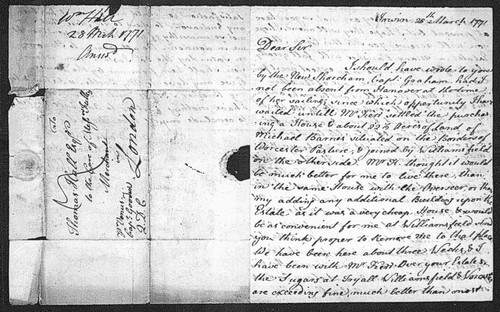 Wm Hall
28 Mch 1771
Thomas Hall Esqr.
to the Care of
Merchants
London
28th March 1771
Dear Sir
I should have wrote to you
by the New Shoreham, Capt. Graham had I
not been absent from Hanover at the time
of her sailing; since which opportunity I have
waited until Mr Kerr settled the purchas-
ing a House & about Acres of Land of
Michael Burnet situated on the Borders of
Worcester Pasture, & joined by Williamsfield
on the other side. Mr K. thought it would
be much better for me to live there, than
in the same House with the Overseer, or than
my adding any additional Building upon the
Estate as it was a very cheap House & would
be as convenient for me at Williamsfield when
you think proper to Remove me to that place
We have been here about three Weeks, & I
have been with Mr over your Estates
the Sugars at Tryall Williamsfield & Worcester
are exceeding fine, much better than most